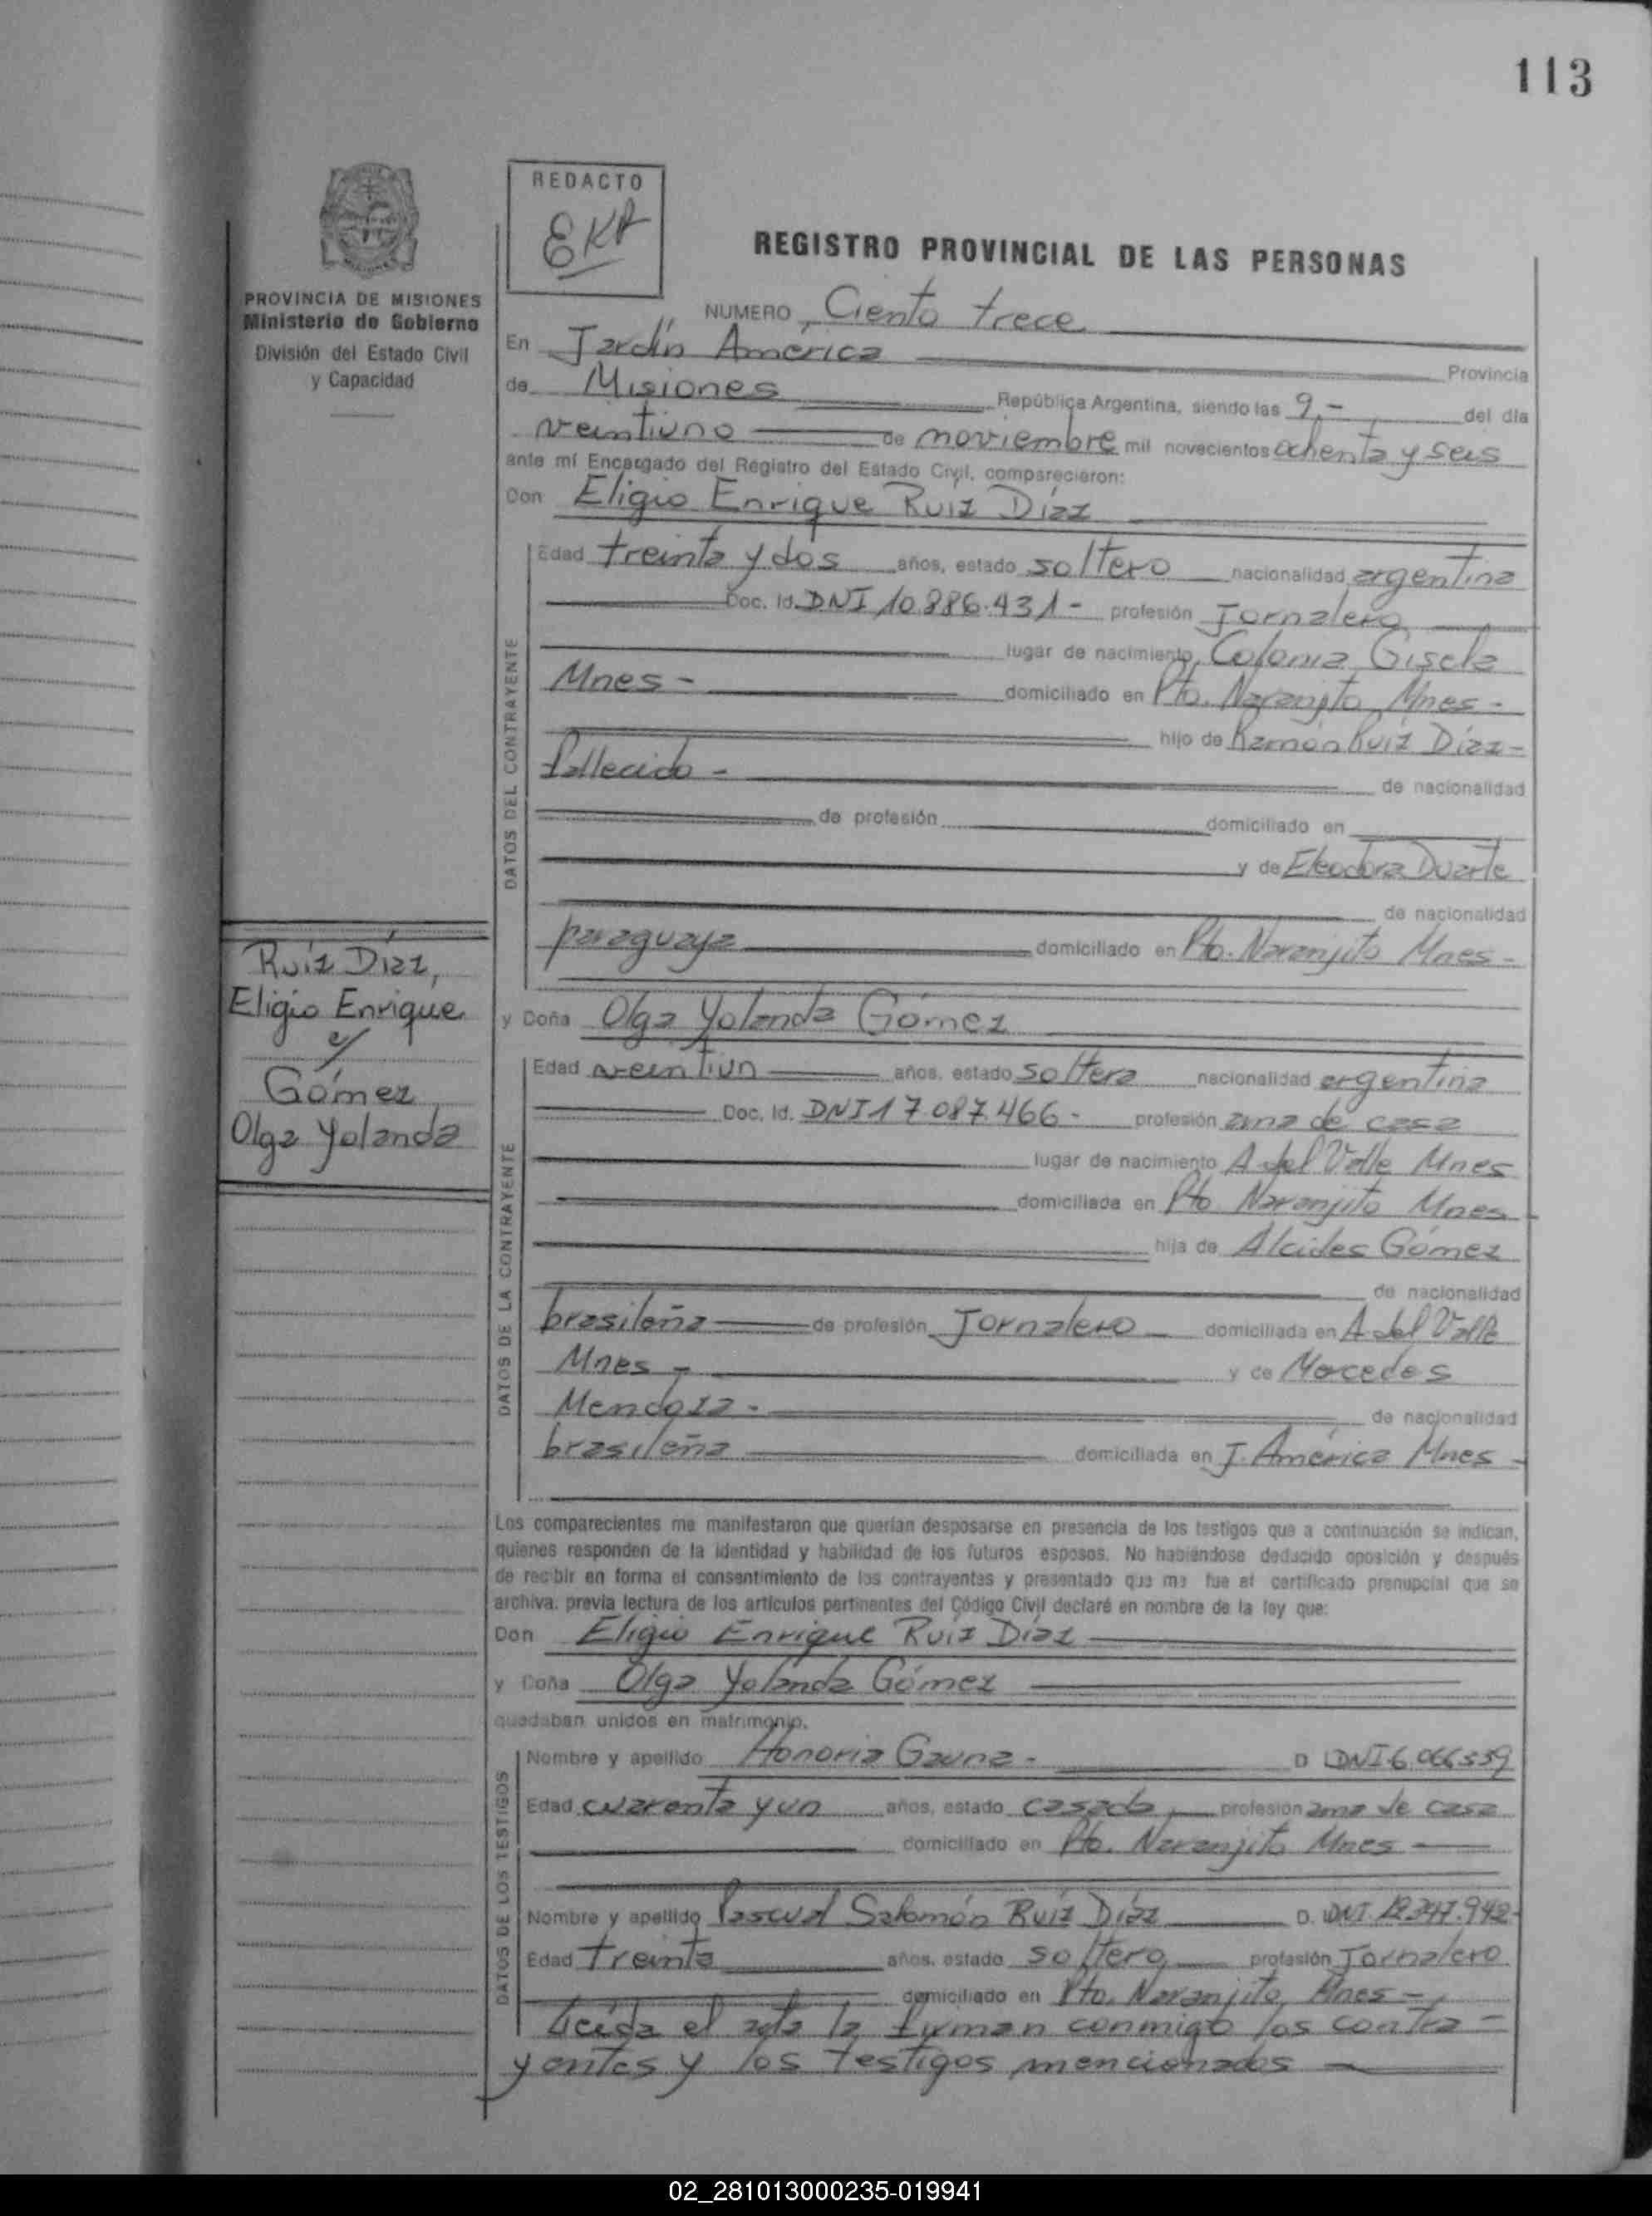 113
REDACTO
EKA
REGISTRO PROVINCIAL DE LAS PERSONAS
PROVINCIA DE MISIONES
Ministerio de Gobierno
División del Estado Civil
y Capacidad
NUMERO Ciento trece
En Jardín América Provincia
de Misiones República Argentina, siendo las 9,- del día
veintiuno de noviembre mil novecientos ochenta y seis
ante mí Encargado del Registro del Estado Civil, comparecieron:
Don Eligio Enrique Ruíz Díaz
DATOS DEL CONTRAYENTE
Edad treinta y dos años, estado soltero nacionalidad argentina
Doc. Id. DNI 10.886.431- profesión Jornalero
lugar de nacimiento, Colonia Gisela
Mnes- domiciliado en Pto. Naranjito Mnes-
hijo de Ramón Ruíz Díaz-
fallecido- de nacionalidad
de profesión domiciliado en
y de Eleodora Duarte
de nacionalidad
paraguaya domiciliado en Pto. Naranjito Mnes-
Ruíz Díaz,
Eligio Enrique
c/
Gómez
Olga Yolanda
y Doña Olga Yolanda Gómez
DATOS DE LA CONTRAYENTE
Edad veintiun años, estado soltera nacionalidad argentina
Doc. Id. DNI 17.087.466- profesión ama de casa
lugar de nacimiento A del Valle Mnes
domiciliada en Pto. Naranjito Mnes
hija de Alcides Gómez
de nacionalidad
brasileña de profesión Jornalero domiciliada en A del Valle
Mnes- y de Mercedes
Mendoza- de nacionalidad
brasileña domiciliada en J. América Mnes-
Los comparecientes me manifestaron que querían desposarse en presencia de los testigos que a continuación se indican,
quienes responden de la identidad y habilidad de los futuros esposos. No habiéndose deducido oposición y después
de recibir en forma el consentimiento de los contrayentes y presentado que me fue el certificado prenupcial que se
archiva. previa lectura de los artículos pertinentes del Código Civil declaré en nombre de la ley que:
Don Eligio Enrique Ruíz Díaz
y Doña Olga Yolanda Gómez
quedaban unidos en matrimonio.
DATOS DE LOS TESTIGOS
Nombre y apellido Honoria Gauna- D DNI 6.066.339
Edad cuarenta y un años, estado casada profesión ama de casa
domiciliado en Pto. Naranjito Mnes
Nombre y apellido Pascual Salomón Ruíz Díaz D. DNI. 12.347.942-
Edad treinta años, estado soltero profesión Jornalero
domiciliado en Pto. Naranjito Mnes-
Leída el acta la firman conmigo los contra-
yentes y los testigos mencionados
02_281013000235-019941